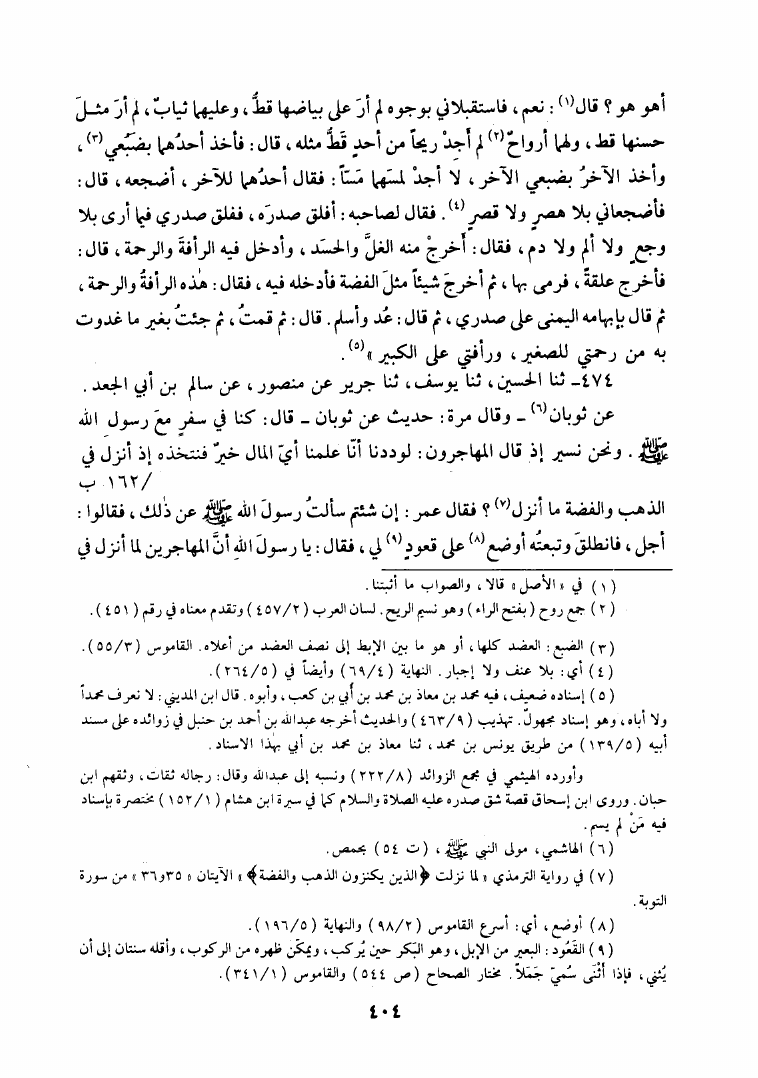 أهو هو ؟ قال(١) : نعم ، فاستقبلاني بوجوه لم أرَ على بياضها قطُّ ، وعليهما ثيابٌ ، لم أرَ مثلَ
حسنها قط ، ولهما أرواحٌ(٢) لم أَجِدْ ريحاً من أحدٍ قَطُّ مثله ، قال : فأخذ أحدُهما بضَبُعي(٣) ،
وأخذ الآخرُ بضبعي الآخر ، لا أجدْ لمسهما مَسّاً : فقال أحدُهما للآخر ، أضجعه ، قال :
فأضجعاني بلا هصرٍ ولا قصرٍ(٤) . فقال لصاحبه : أفلق صدرَه ، ففلق صدري فيما أرى بلا
وجعٍ ولا ألم ولا دم ، فقال : أَخرجْ منه الغلَّ والحسَد ، وأدخل فيه الرأفةَ والرحمة ، قال :
فأخرج علقةً ، فرمى بها ، ثم أخرجَ شيئاً مثلَ الفضة فأدخله فيه ، فقال : هٰذه الرأفةُ والرحمة ،
ثم قال بإبهامه اليمنى على صدري ، ثم قال : عُد وأسلم . قال : ثم قمتُ ، ثم جئتُ بغير ما غدوت
به من رحمتي للصغير ، ورأفتي على الكبير »(٥) .
٤٧٤ـ ثنا الحسين ، ثنا يوسف ، ثنا جرير عن منصور ، عن سالم بن أبي الجعد .
عن ثوبان(٦) ـ وقال مرة : حديث عن ثوبان ـ قال : كنا في سفرٍ معَ رسولِ الله
ﷺ . ونحن نسير إذ قال المهاجرون : لوددنا أنّا علمنا أيّ المال خيرٌ فنتخذه إذ أنزل في
/١٦٢ ب
الذهب والفضة ما أنزل(٧) ؟ فقال عمر : إن شئتم سألتُ رسولَ الله ﷺ عن ذٰلك ، فقالوا :
أجل ، فانطلقَ وتبعتُه أوضع(٨) على قعودٍ(٩) لي ، فقال : يا رسولَ اللهِ أنَّ المهاجرين لما أنزل في
(١) في « الأصل » قالا ، والصواب ما أثبتنا .
(٢) جمع روح (بفتح الراء) وهو نسيم الريح . لسان العرب (٤٥٧/٢) وتقدم معناه في رقم (٤٥١) .
(٣) الضبع : العضد كلها ، أو هو ما بين الإبط إلى نصف العضد من أعلاه . القاموس (٥٥/٣) .
(٤) أي : بلا عنف ولا إجبار . النهاية (٦٩/٤) وأيضاً في (٢٦٤/٥) .
(٥) إسناده ضعيف ، فيه محمد بن معاذ بن محمد بن أُبي بن كعب ، وأبوه . قال ابن المديني : لا نعرف محمداً
ولا أباه ، وهو إسناد مجهولٌ . تهذيب (٤٦٣/٩) والحديث أخرجه عبدالله بن أحمد بن حنبل في زوائده على مسند
أبيه (١٣٩/٥) من طريق يونس بن محمد ، ثنا معاذ بن محمد بن أبي بهٰذا الاسناد .
وأورده الهيثمي في مجمع الزوائد (٢٢٢/٨) ونسبه إلى عبدالله وقال : رجاله ثقات ، وثقهم ابن
حبان . وروى ابن إسحاق قصة شق صدره عليه الصلاة والسلام كما في سيرة ابن هشام (١٥٢/١) مختصرة بإسناد
فيه مَنْ لم يسم .
(٦) الهاشمي ، مولى النبي ﷺ ، (ت ٥٤) بحمص .
(٧) في رواية الترمذي « لما نزلت ﴿الذين يكنزون الذهب والفضة﴾ » الآيتان « ٣٥و٣٦ » من سورة
التوبة .
(٨) أوضع ، أي : أسرع القاموس (٩٨/٢) والنهاية (١٩٦/٥) .
(٩) القَعُود : البعير من الإبل ، وهو البَكر حين يُركب ، ويمكّن ظهره من الركوب ، وأقله سنتان إلى أن
يُثني ، فإذا أَثْنَى سُميّ جَمَلاً . مختار الصحاح (ص ٥٤٤) والقاموس (٣٤١/١) .
٤٠٤